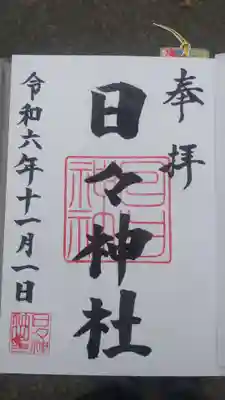 奉拝
日々神社
令和六年十一月一日